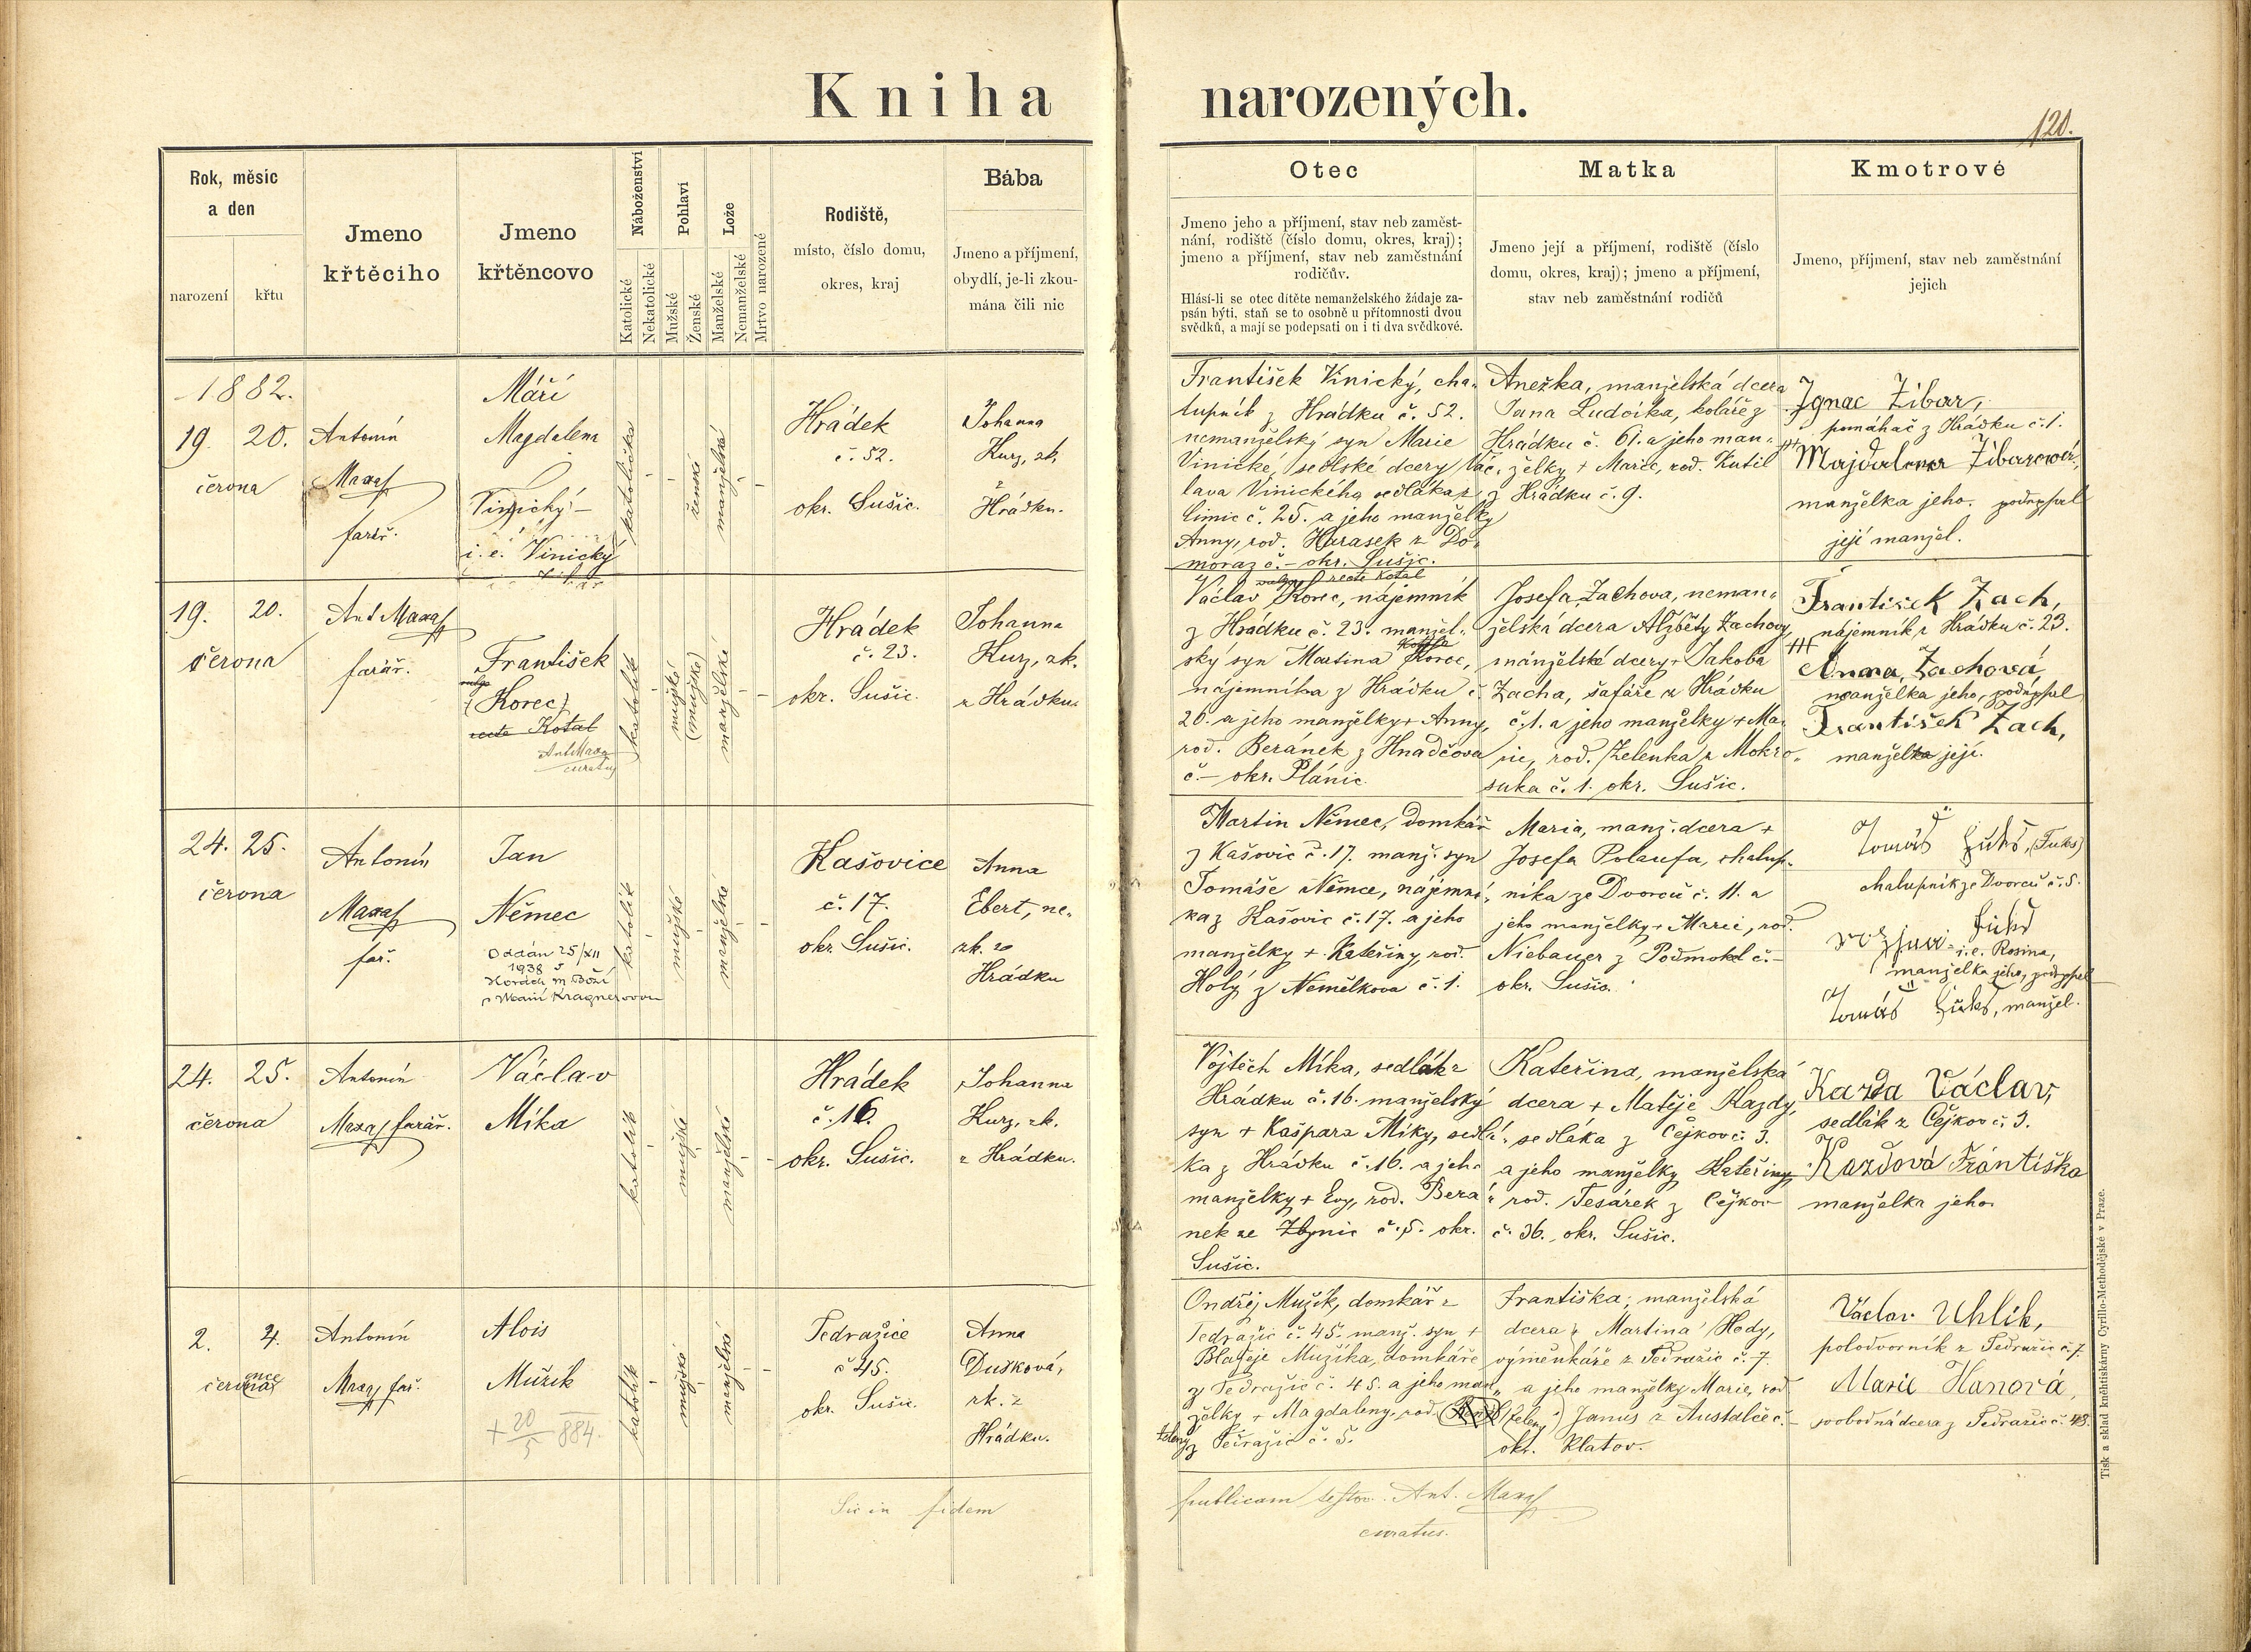 Kniha narozených.
120.
Rok, měsíc
a den
narození
křtu
Jmeno
křtěcího
Jmeno
křtěncovo
Náboženství
Katolické
Nekatolické
Pohlaví
Mužské
Ženské
Lože
Manželské
Nemanželské
Mrtvo narozené
Rodiště,
místo, číslo domu,
okres, kraj
Bába
Jmeno a příjmení,
obydlí, je-li zkou-
mána čili nic
Otec
Jmeno jeho a příjmení, stav neb zaměst-
nání, rodiště (číslo domu, okres, kraj);
jmeno a příjmení, stav neb zaměstnání
rodičův.
Hlásí-li se otec dítěte nemanželského žádaje za-
psán býti, staň se to osobně u přítomnosti dvou
svědků, a mají se podepsati on i ti dva svědkové.
Matka
Jmeno její a příjmení, rodiště (číslo
domu, okres, kraj); jmeno a příjmení,
stav neb zaměstnání rodičů
Kmotrové
Jmeno, příjmení, stav neb zaměstnání
jejich
1882.
19. 20.
června
Antonín
Maxa
farář.
Máří
Magdalena
Vinický
i.e. Vinický
katolička
ženské
manželské
Hrádek
č. 52.
okr. Sušic.
Johanna
Kurz, zk.
z
Hrádku.
František Vinický, cha-
lupník z Hrádku č. 52.
nemanželský syn Marie
Vinické, sedlské dcery Vác-
lava Vinického sedláka z
Čimic č. 25. a jeho manželky
Anny, rod. Harasek z Do-
moraz č. – okr. Sušic.
Anežka, manželská dcera
Jana Ludvíka, koláře z
Hrádku č. 61. a jeho man-
želky + Marie, rod. Kutil
z Hrádku č. 9.
Ignac Žibar,
pomáhač z Hrádku č. 1.
+++ Majdalena Žibarová,
manželka jeho. podepsal
její manžel.
19. 20.
června
Ant Maxa
farář.
František
vulgo
(Korec)
recte Kotal
Ant Maxa
curatus
katolík
mužské
(mužské)
manželské
Hrádek
č. 23.
okr. Sušic.
Johanna
Kurz, zk.
z Hrádku.
vulgo recte Kotal
Václav Korec, nájemník
z Hrádku č. 23. manžel-
ský syn Martina Korec,
nájemníka z Hrádku č.
20. a jeho manželky + Anny,
rod. Beránek z Hnačova
č. – okr. Plánic.
Josefa Zachova, neman-
želská dcera Alžběty Zachovy,
manželské dcery + Jakoba
Zacha, šafáře z Hrádku
č. 1. a jeho manželky + Ma-
rie, rod. Zelenka z Mokro-
suka č. 1. okr. Sušic.
František Zach,
nájemník z Hrádku č. 23.
+++
Anna Zachová,
manželka jeho, podepsal
František Zach,
manžel její.
24. 25.
června
Antonín
Maxa
far.
Jan
Němec
Oddán 25/XII
1938 v
Horách M. Boží
s Marií Kragnerovou
katolík
mužské
manželské
Kašovice
č. 17.
okr. Sušic.
Anna
Ebert, ne-
zk. z
Hrádku
Martin Němec, domkář
z Kašovic č. 17. manž. syn
Tomáše Němce, nájemní-
ka z Kašovic č. 17. a jeho
manželky + Kateřiny, rod.
Holý z Němělkova č. 1.
Maria, manž. dcera +
Josefa Polaufa, chalup-
níka ze Dvorců č. 11. a
jeho manželky + Marie, rod.
Niebauer z Podmokl č. –
okr. Sušic.
Tomáš Fuks, (Fuks)
chalupník ze Dvorců č. 5.
Fuks
i.e. Rosina,
manželka jeho, podepsal
Tomáš Fuks, manžel.
24. 25.
června
Antonín
Maxa, farář.
Václav
Míka
katolík
mužské
manželské
Hrádek
č. 16.
okr. Sušic.
Johanna
Kurz, zk.
z Hrádku.
Vojtěch Míka, sedlák z
Hrádku č. 16. manželský
syn + Kašpara Míky, sedlá-
ka z Hrádku č. 16. a jeho
manželky + Evy, rod. Berá-
nek ze Zbynic č. 5. okr.
Sušic.
Kateřina, manželská
dcera + Matěje Kazdy,
sedláka z Čejkov č. 3.
a jeho manželky Kateřiny,
rod. Tesárek z Čejkov
č. 36., okr. Sušic.
Kazda Václav,
sedlák z Čejkov č. 3.
Kazdová Františka
manželka jeho.
2. 4.
července
Antonín
Maxa, far.
Alois
Mužík
+ 20/5 884.
katolík
mužské
manželské
Tedražice
č 45.
okr. Sušic.
Anna
Dušková,
zk. z
Hrádku.
Ondřej Mužík, domkář z
Tedražic č. 45. manž. syn +
Blažeje Mužíka, domkáře
z Tedražic č. 45. a jeho man-
želky + Magdaleny, rod. (Zelený)
Zelený z Tedražic č. 5.
Františka, manželská
dcera Martina Hody,
výměnkáře z Tedražic č. 7.
a jeho manželky Marie, rod
Janus z Austalče č. –
okr. Klatov.
Václav Uhlík,
polodvorník z Tedražic č. 7.
Marie Hanová,
svobodná dcera z Tedražic č. 48.
Sic in fidem publicam testor. Ant. Maxa
curatus.
Tisk a sklad knihtiskárny Cyrillo-Methodějské v Praze.